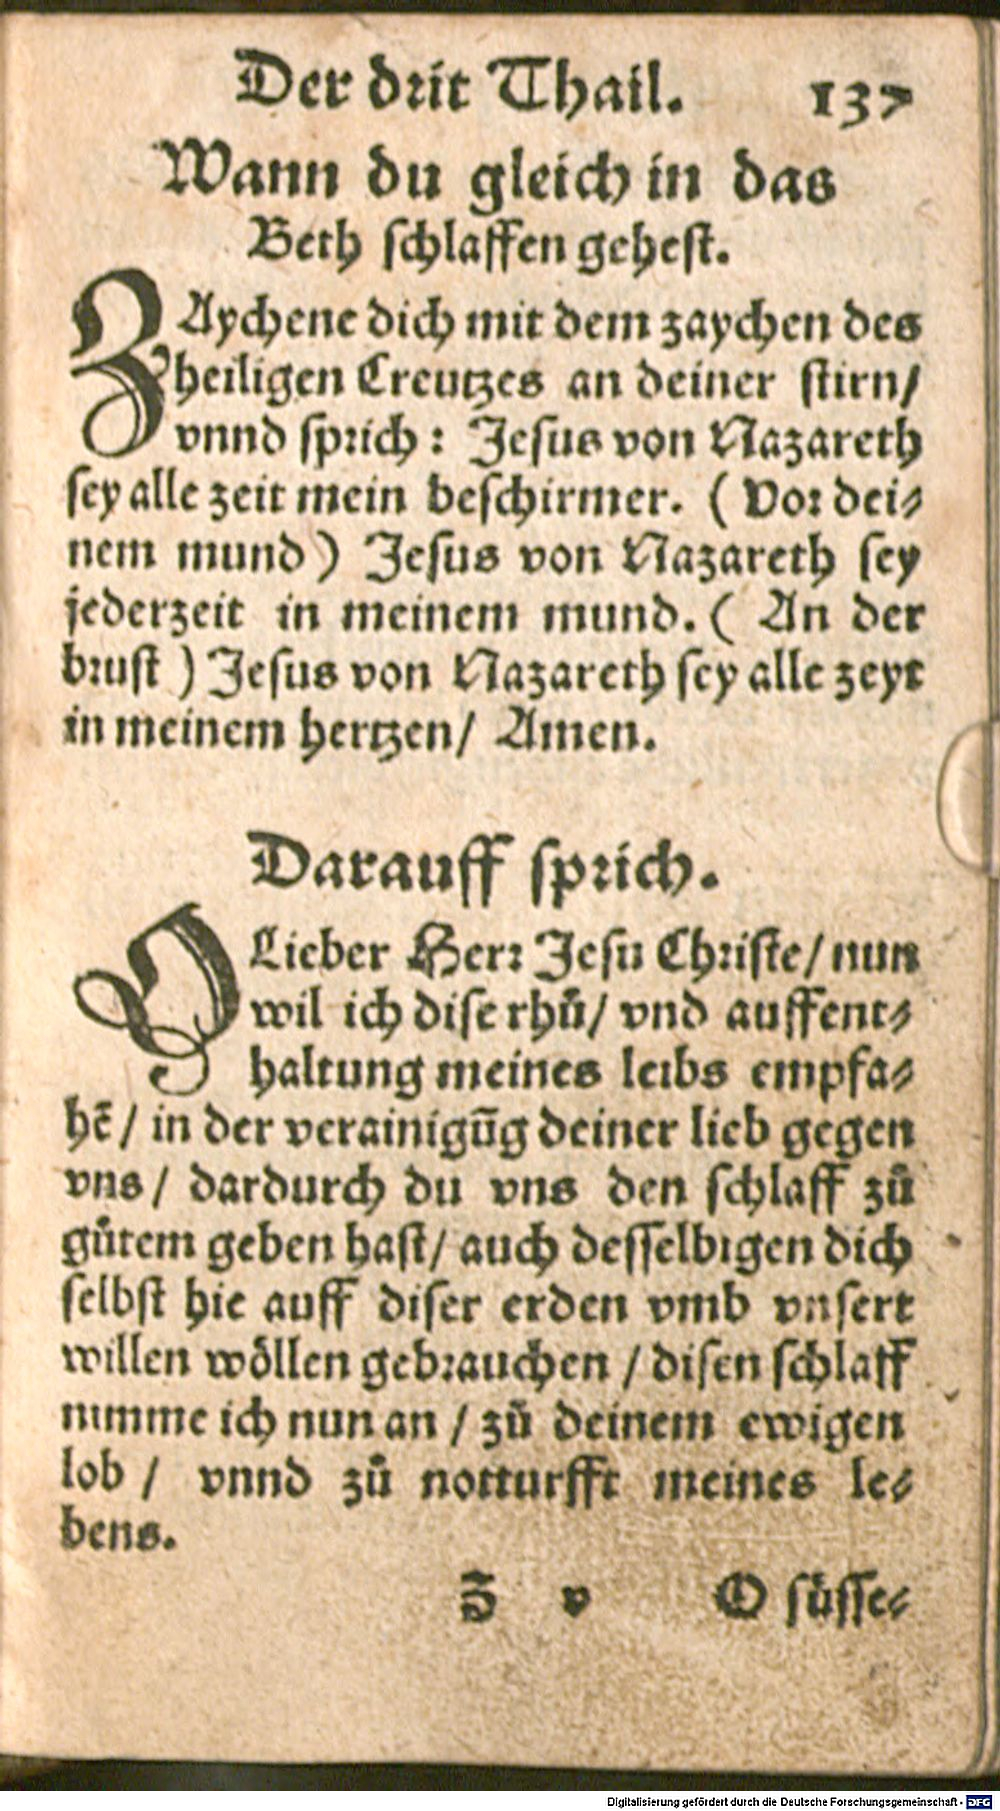 Der drit Thail. 137
Wann du gleich in das
Beth schlaffen gehest.
ZAychene dich mit dem zaychen des
heiligen Creutzes an deiner stirn/
vnnd sprich: Jesus von Nazareth
sey alle zeit mein beschirmer. (Vor dei⸗
nem mund) Jesus von Nazareth sey
jederzeit in meinem mund. (An der
brust) Jesus von Nazareth sey alle zeyt
in meinem hertzen/ Amen.
Darauff sprich.
O Lieber Herr Jesu Christe/ nun
wil ich dise rhuͦ/ vnd auffent⸗
haltung meines leibs empfa⸗
hẽ/ in der verainigũg deiner lieb gegen
vns/ dardurch du vns den schlaff zuͦ
guͦtem geben hast/ auch desselbigen dich
selbst hie auff diser erden vmb vnsert
willen woͤllen gebrauchen/ disen schlaff
nimme ich nun an/ zuͦ deinem ewigen
lob/ vnnd zuͦ notturfft meines le⸗
bens.
S v O suͤsse⸗
Digitalisierung gefördert durch die Deutsche Forschungsgemeinschaft - DFG